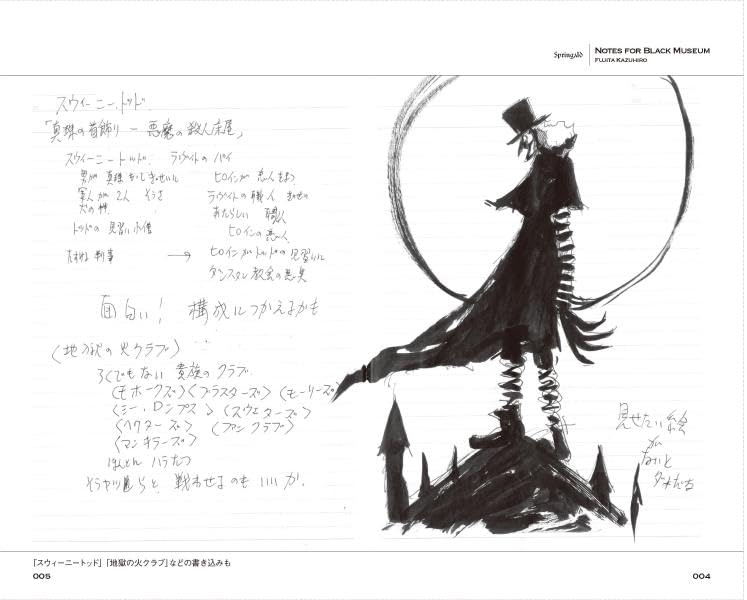 Springald
NOTES FOR BLACK MUSEUM
FUJITA KAZUHIRO
スウィーニー・トッド
「真珠の首飾り － 悪魔の殺人床屋」
スウィーニー トッド ラヴィットの パイ
男が 真珠 ヒロインが 恋人をまつ
軍人が 2人 そうさ ラヴィットの 職人
犬の件 あたらしい 職人
トッドの 見習い小僧 ヒロインの恋人
判事 → ヒロインがトッドの見習いに
ダンスタン教会の悪臭
面白い! 構成につかえるかも
〈地獄の火クラブ〉
ろくでもない 貴族の クラブ
〈モホークズ〉〈ブラスターズ〉〈モーリーズ〉
〈ミー・ロンプス〉〈スウェターズ〉
〈ヘクターズ〉〈ファンクラブ〉
〈マンキラーズ〉
ほんとに ハラたつ
そうヤツらと 戦わせるのも いいか。
見せたい絵
が
ないと
ダメだな
「スウィーニートッド」「地獄の火クラブ」などの書き込みも
005
004